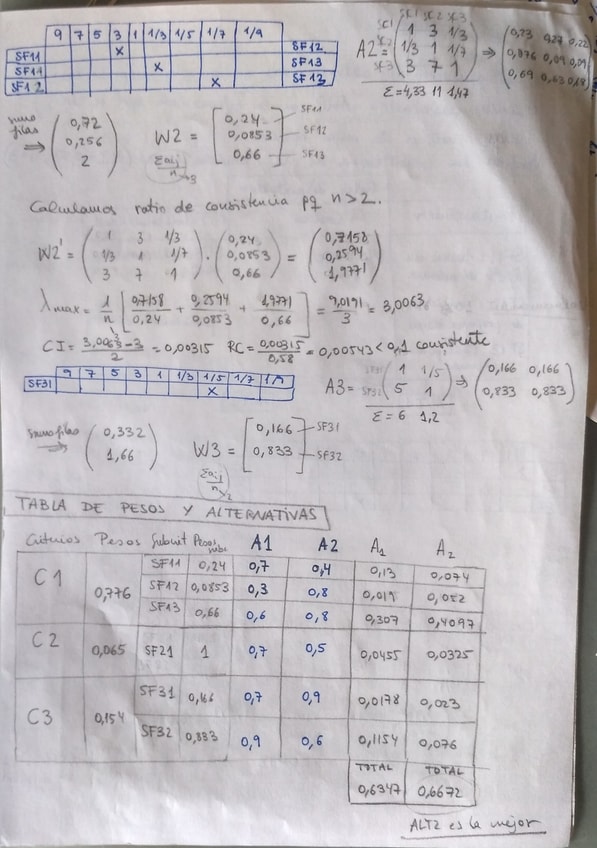 9 7 5 3 1 1/3 1/5 1/7 1/9
SF11 x SF12
SF11 x SF13
SF12 x SF13
SF1 SF2 SF3
A2 = SF1 ( 1 3 1/3 ) ⇒ ( 0,23 0,27 0,22 )
SF2 ( 1/3 1 1/7 ) ( 0,076 0,09 0,09 )
SF3 ( 3 7 1 ) ( 0,69 0,63 0,68 )
Σ = 4,33 11 1,47
suma filas ⇒ ( 0,72 0,256 2 )
W2 = [ 0,24 0,0853 0,66 ] SF11 SF12 SF13
Σaij/n →3
Calculamos ratio de consistencia pq n > 2.
W2' = ( 1 3 1/3 ) · ( 0,24 ) = ( 0,7158 )
( 1/3 1 1/7 ) ( 0,0853 ) ( 0,2594 )
( 3 7 1 ) ( 0,66 ) ( 1,9771 )
λmax = 1/n [ 0,7158/0,24 + 0,2594/0,0853 + 1,9771/0,66 ] = 9,0191/3 = 3,0063
CI = 3,0063-3/2 = 0,00315 RC = 0,00315/0,58 = 0,00543 < 0,1 consistente
9 7 5 3 1 1/3 1/5 1/7 1/9
SF31 x
A3 = SF31 ( 1 1/5 ) ⇒ ( 0,166 0,166 )
SF32 ( 5 1 ) ( 0,833 0,833 )
Σ = 6 1,2
suma filas ⇒ ( 0,332 1,66 )
W3 = [ 0,166 0,833 ] SF31 SF32
Σaij/n →2
TABLA DE PESOS Y ALTERNATIVAS
Criterios Pesos Subcrit Pesos subc A1 A2 A1 A2
C1 0,776 SF11 0,24 0,7 0,4 0,13 0,074
SF12 0,0853 0,3 0,8 0,019 0,052
SF13 0,66 0,6 0,8 0,307 0,4097
C2 0,065 SF21 1 0,7 0,5 0,0455 0,0325
C3 0,154 SF31 0,166 0,7 0,9 0,0178 0,023
SF32 0,833 0,9 0,6 0,1154 0,076
TOTAL TOTAL
0,6347 0,6672
ALT2 es la mejor